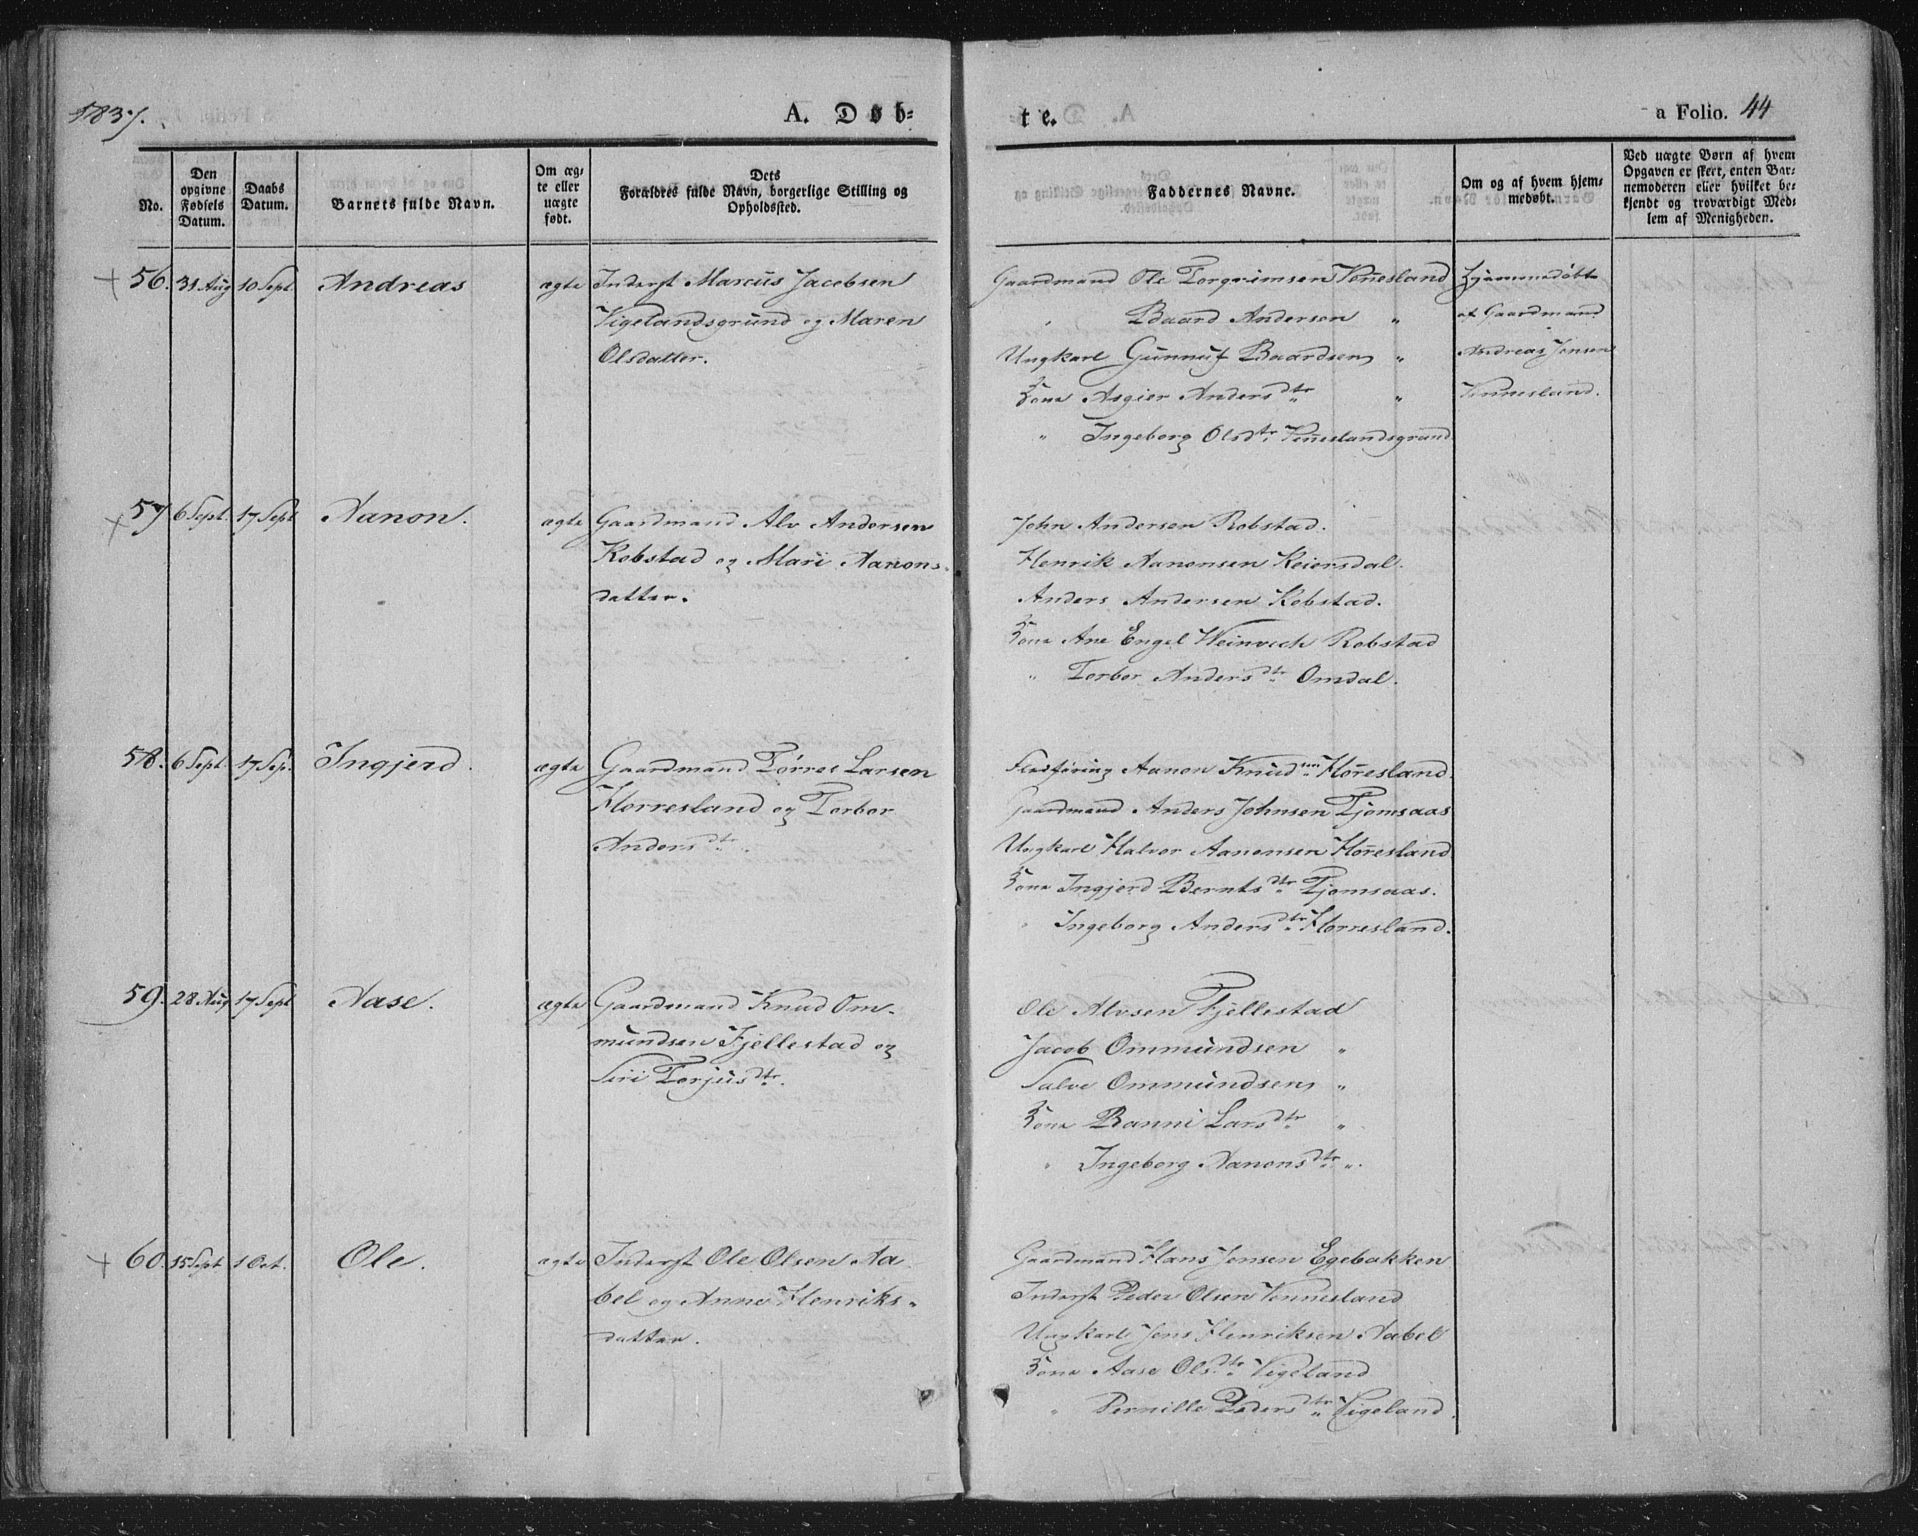 1837.
A. Døb-
te.
a Folio. 44
No.
Den opgivne Fødsels Datum.
Daabs Datum.
Barnets fulde Navn.
Om ægte eller uægte født.
Dets Forældres fulde Navn, borgerlige Stilling og Opholdssted.
Faddernes Navne.
Om og af hvem hjemmedøbt.
Ved uægte Børn af hvem Opgaven er skert, enten Barnemoderen eller hvilket bekjendt og troværdigt Medlem af Menigheden.
56. 31 Aug 10 Sept. Andreas ægte Inderst Marcus Jacobsen
Vigelandsgrund og Maren
Olsdatter.
Gaardmand Ole Torgrimsen Vennesland
" Baard Andersen "
Ungkarl Gunnuf Baardsen "
Kone Asgier Andersdtr "
" Ingeborg Olsdtr Venneslandsgrund
Hjemmedøbt
af Gaardmand
Andreas Jensen
Vennesland.
57 6 Sept. 17 Sept Aanon. ægte Gaardmand Alv Andersen
Robstad og Mari Aanons-
datter.
John Andersen Robstad.
Henrik Aanonsen Reiersdal.
Anders Andersen Robstad.
Kone Ane Engel Weinvich Robstad
" Torbor Andersdtr Omdal.
58. 6 Sept. 17 Sep. Ingjerd. ægte Gaardmand Tørres Larsen
Horresland og Torbor
Andersdtr.
Aanon Knudsen Horresland.
Gaardmand Anders Johnsen Tjomsaas
Ungkarl Halvor Aanonsen Horresland
Kone Ingjerd Berntsdtr Tjomsaas.
" Ingeborg Andersdtr Horresland.
59. 28 Aug 17 Sept Aase. ægte Gaardmand Knud Om-
mundsen Fjellestad og
Siri Torjusdtr.
Ole Alvsen Fjellestad
Jacob Ommundsen "
Salve Ommundsen "
Kone Ranni Larsdtr "
" Ingeborg Aanonsdtr ".
60. 15 Sept 1 Oct. Ole. ægte Inderst Ole Olsen Aa-
bel og Anne Henriks-
datter.
Gaardmand Hans Jensen Egebakken
Inderst Peder Olsen Vennesland
Ungkarl Jens Henriksen Aabel
Kone Aase Olsdtr Vigeland
" Pernille Pedersdtr Vigeland.